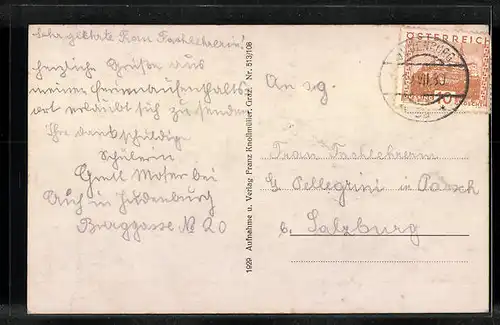 Sehr geehrte Frau Fachlehrerin!
herzliche Grüße aus
meiner Ferienaufenthalts
ort erlaubt sich zu senden
Ihre dankschuldige
Schülerin
Grete Moser bei
Auch in Judenburg
Burggasse No 20
1929 Aufnahme u. Verlag Franz Knollmüller, Graz. Nr. 513/108
ÖSTERREICH
10
JUDENBURG
An sg.
Frau Fachlehrerin
G. Pellegrini in Parsch
b. Salzburg